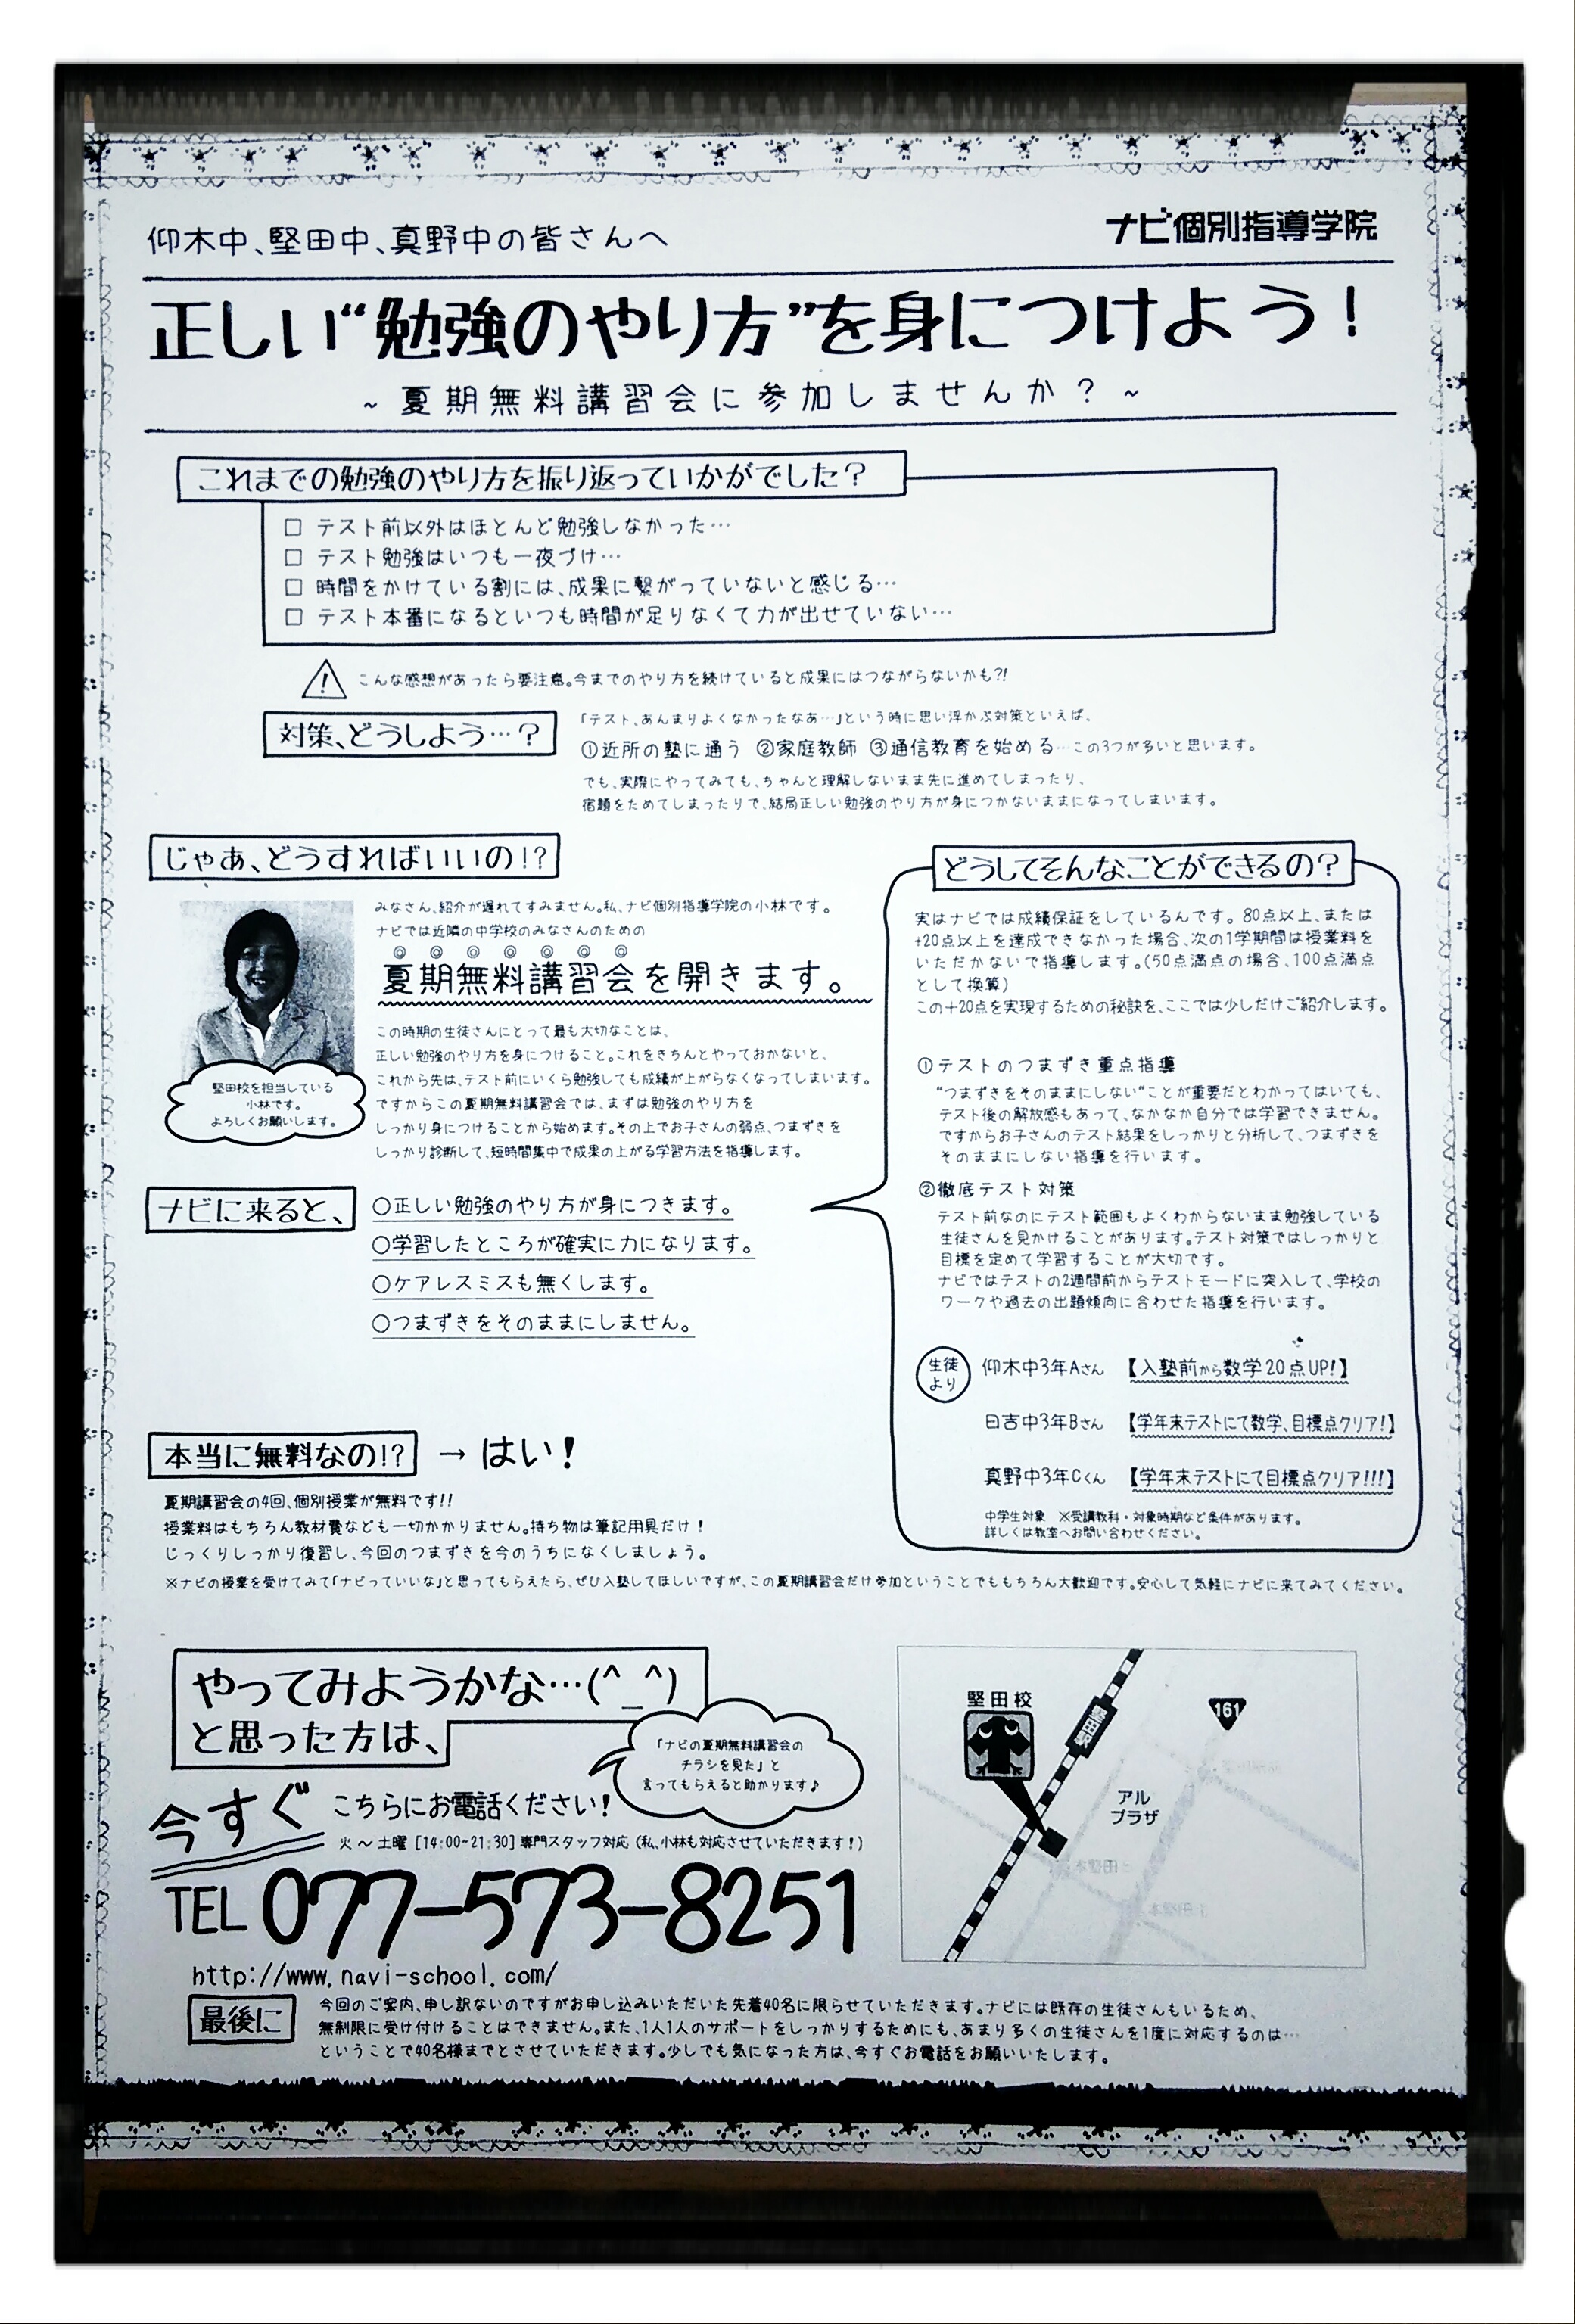 仰木中、堅田中、真野中の皆さんへ
ナビ個別指導学院
正しい“勉強のやり方”を身につけよう！
～夏期無料講習会に参加しませんか？～
これまでの勉強のやり方を振り返っていかがでした？
□ テスト前以外はほとんど勉強しなかった…
□ テスト勉強はいつも一夜づけ…
□ 時間をかけている割には、成果に繋がっていないと感じる…
□ テスト本番になるといつも時間が足りなくて力が出せていない…
! こんな感想があったら要注意。今までのやり方を続けていると成果にはつながらないかも?!
対策、どうしよう…？
「テスト、あんまりよくなかったなあ…」という時に思い浮かぶ対策といえば、
①近所の塾に通う ②家庭教師 ③通信教育を始める…この3つが多いと思います。
でも、実際にやってみても、ちゃんと理解しないまま先に進めてしまったり、
宿題をためてしまったりで、結局正しい勉強のやり方が身につかないままになってしまいます。
じゃあ、どうすればいいの!?
みなさん、紹介が遅れてすみません。私、ナビ個別指導学院の小林です。
ナビでは近隣の中学校のみなさんのための
◎ ◎ ◎ ◎ ◎ ◎ ◎
夏期無料講習会を開きます。
この時期の生徒さんにとって最も大切なことは、
正しい勉強のやり方を身につけること。これをきちんとやっておかないと、
これから先は、テスト前にいくら勉強しても成績が上がらなくなってしまいます。
ですからこの夏期無料講習会では、まずは勉強のやり方を
しっかり身につけることから始めます。その上でお子さんの弱点、つまずきを
しっかり診断して、短時間集中で成果の上がる学習方法を指導します。
堅田校を担当している
小林です。
よろしくお願いします。
ナビに来ると、
○正しい勉強のやり方が身につきます。
○学習したところが確実に力になります。
○ケアレスミスも無くします。
○つまずきをそのままにしません。
どうしてそんなことができるの？
実はナビでは成績保証をしているんです。80点以上、または
+20点以上を達成できなかった場合、次の1学期間は授業料を
いただかないで指導します。(50点満点の場合、100点満点
として換算)
この+20点を実現するための秘訣を、ここでは少しだけご紹介します。
①テストのつまずき重点指導
“つまずきをそのままにしない”ことが重要だとわかってはいても、
テスト後の解放感もあって、なかなか自分では学習できません。
ですからお子さんのテスト結果をしっかりと分析して、つまずきを
そのままにしない指導を行います。
②徹底テスト対策
テスト前なのにテスト範囲もよくわからないまま勉強している
生徒さんを見かけることがあります。テスト対策ではしっかりと
目標を定めて学習することが大切です。
ナビではテストの2週間前からテストモードに突入して、学校の
ワークや過去の出題傾向に合わせた指導を行います。
生徒
より
仰木中3年Aさん 【入塾前から数学20点UP!】
日吉中3年Bさん 【学年末テストにて数学、目標点クリア!】
真野中3年Cくん 【学年末テストにて目標点クリア!!!】
中学生対象 ※受講教科・対象時期など条件があります。
詳しくは教室へお問い合わせください。
本当に無料なの!? → はい！
夏期講習会の4回、個別授業が無料です!!
授業料はもちろん教材費なども一切かかりません。持ち物は筆記用具だけ！
じっくりしっかり復習し、今回のつまずきを今のうちになくしましょう。
※ナビの授業を受けてみて「ナビっていいな」と思ってもらえたら、ぜひ入塾してほしいですが、この夏期講習会だけ参加ということでももちろん大歓迎です。安心して気軽にナビに来てみてください。
やってみようかな…(^_^)
と思った方は、
「ナビの夏期無料講習会の
チラシを見た」と
言ってもらえると助かります♪
今すぐ こちらにお電話ください！
火～土曜 [14:00~21:30] 専門スタッフ対応 (私、小林も対応させていただきます！)
TEL 077-573-8251
http://www.navi-school.com/
堅田校
堅田駅
161
アル
プラザ
最後に
今回のご案内、申し訳ないのですがお申し込みいただいた先着40名に限らせていただきます。ナビには既存の生徒さんもいるため、
無制限に受け付けることはできません。また、1人1人のサポートをしっかりするためにも、あまり多くの生徒さんを1度に対応するのは…
ということで40名様までとさせていただきます。少しでも気になった方は、今すぐお電話をお願いいたします。